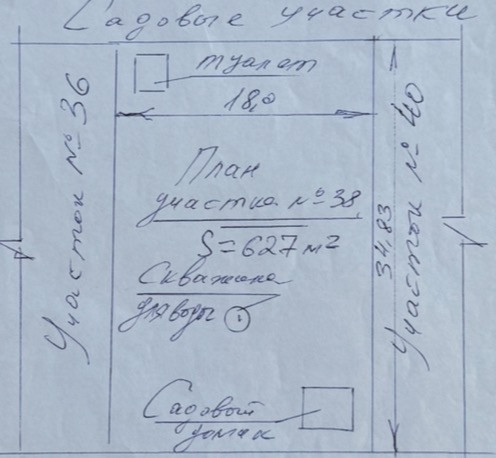 Садовые участки
туалет
18,0
Участок № 36
План
участка № 38
S=627 м²
Скважина
для воды
Садовый
домик
34,83
Участок № 40